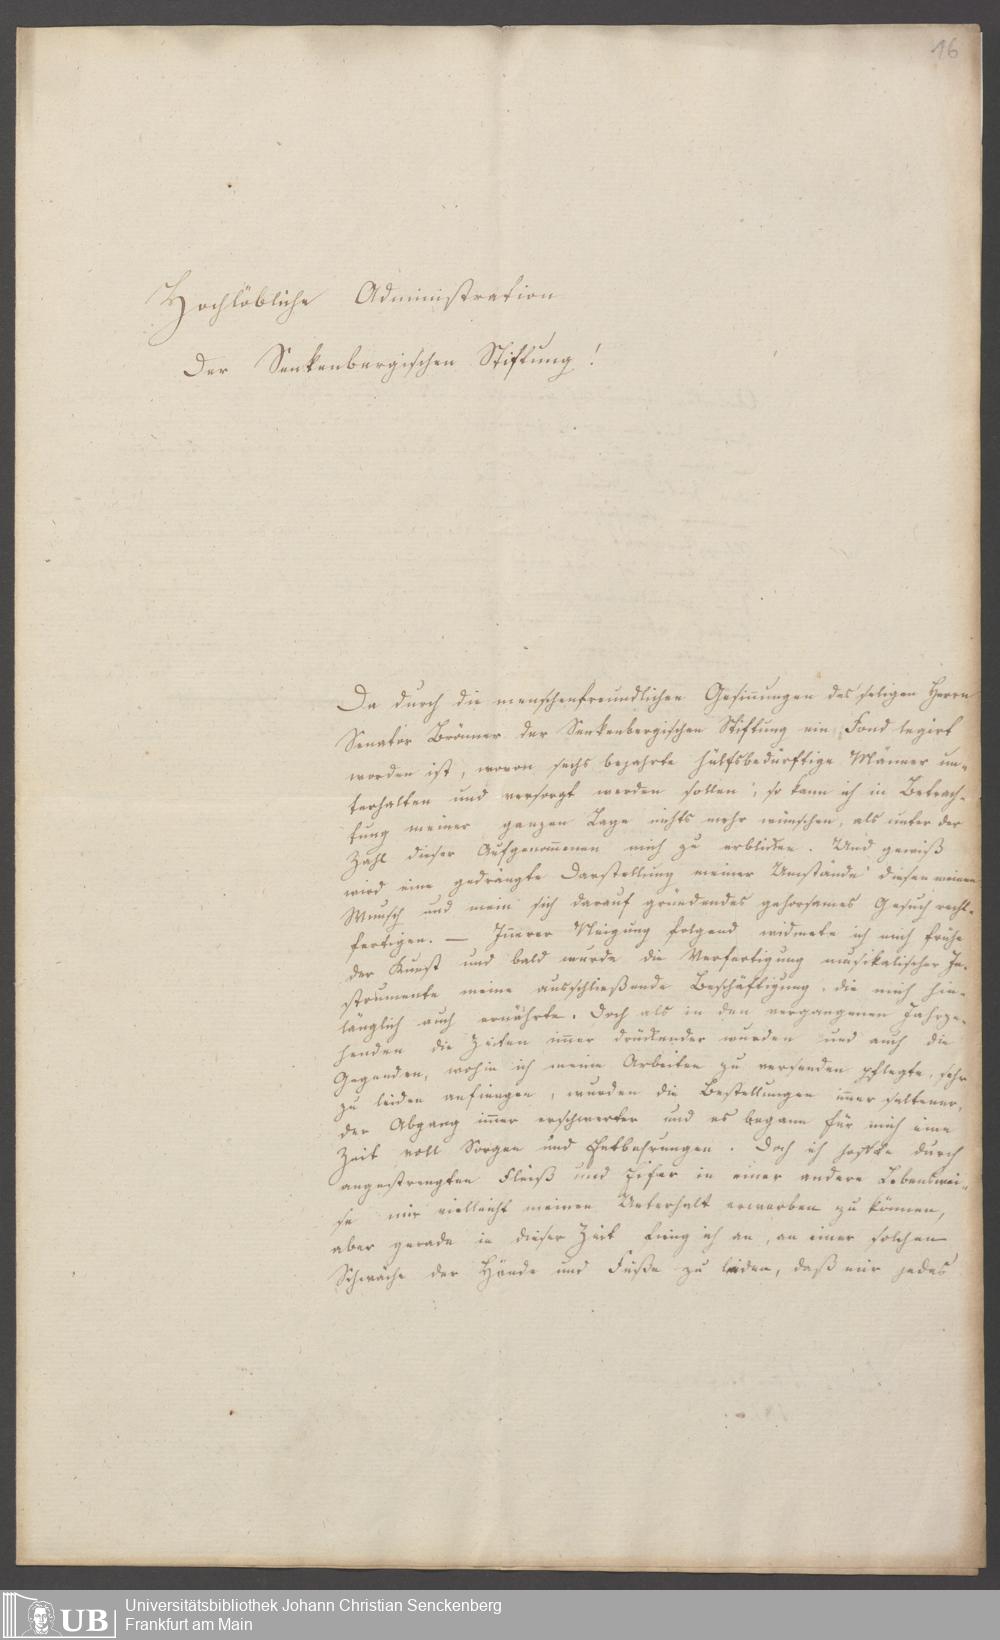 16
Hochlöbliche Administration
der Senkenbergischen Stiftung!
Da durch die menschenfreundlichen Gesinnungen des seligen Herrn
Senator Brönner der Senkenbergischen Stiftung ein Fond legirt
worden ist, wovon sechs bejahrte hülfsbedürftige Männer un-
terhalten und versorgt werden sollen; so kann ich in Betrach-
tung meiner ganzen Lage nichts mehr wünschen, als unter der
Zahl dieser Aufgenom̅enen mich zu erblicken. Und gewiß
wird eine gedrängte Darstellung meiner Umstände diesen meinen
Wunsch und mein sich darauf gründendes gehorsames Gesuch recht-
fertigen. — Iñerer Neigung folgend widmete ich mich frühe
der Kunst und bald wurde die Verfertigung musikalischer In-
strumente meine ausschließende Beschäftigung, die mich hin-
länglich auch ernährte. Doch als in den vergangenen Jahrze-
henden die Zeiten im̅er drückender wurden und auch die
Gegenden, wohin ich meine Arbeiten zu versenden pflegte, sehr
zu leiden anfiengen, wurden die Bestellungen im̅er seltener,
der Abgang im̅er erschwerter und es begann für mich eine
Zeit voll Sorgen und Entbehrungen. Doch ich hoffte durch
angestrengten Fleiß und Eifer in einer andern Lebenswei-
se mir vielleicht meinen Unterhalt erwerben zu können,
aber gerade in dieser Zeit fieng ich an, an einer solchen
Schwäche der Hände und Füße zu leiden, daß mir jedes
UB
Universitätsbibliothek Johann Christian Senckenberg
Frankfurt am Main